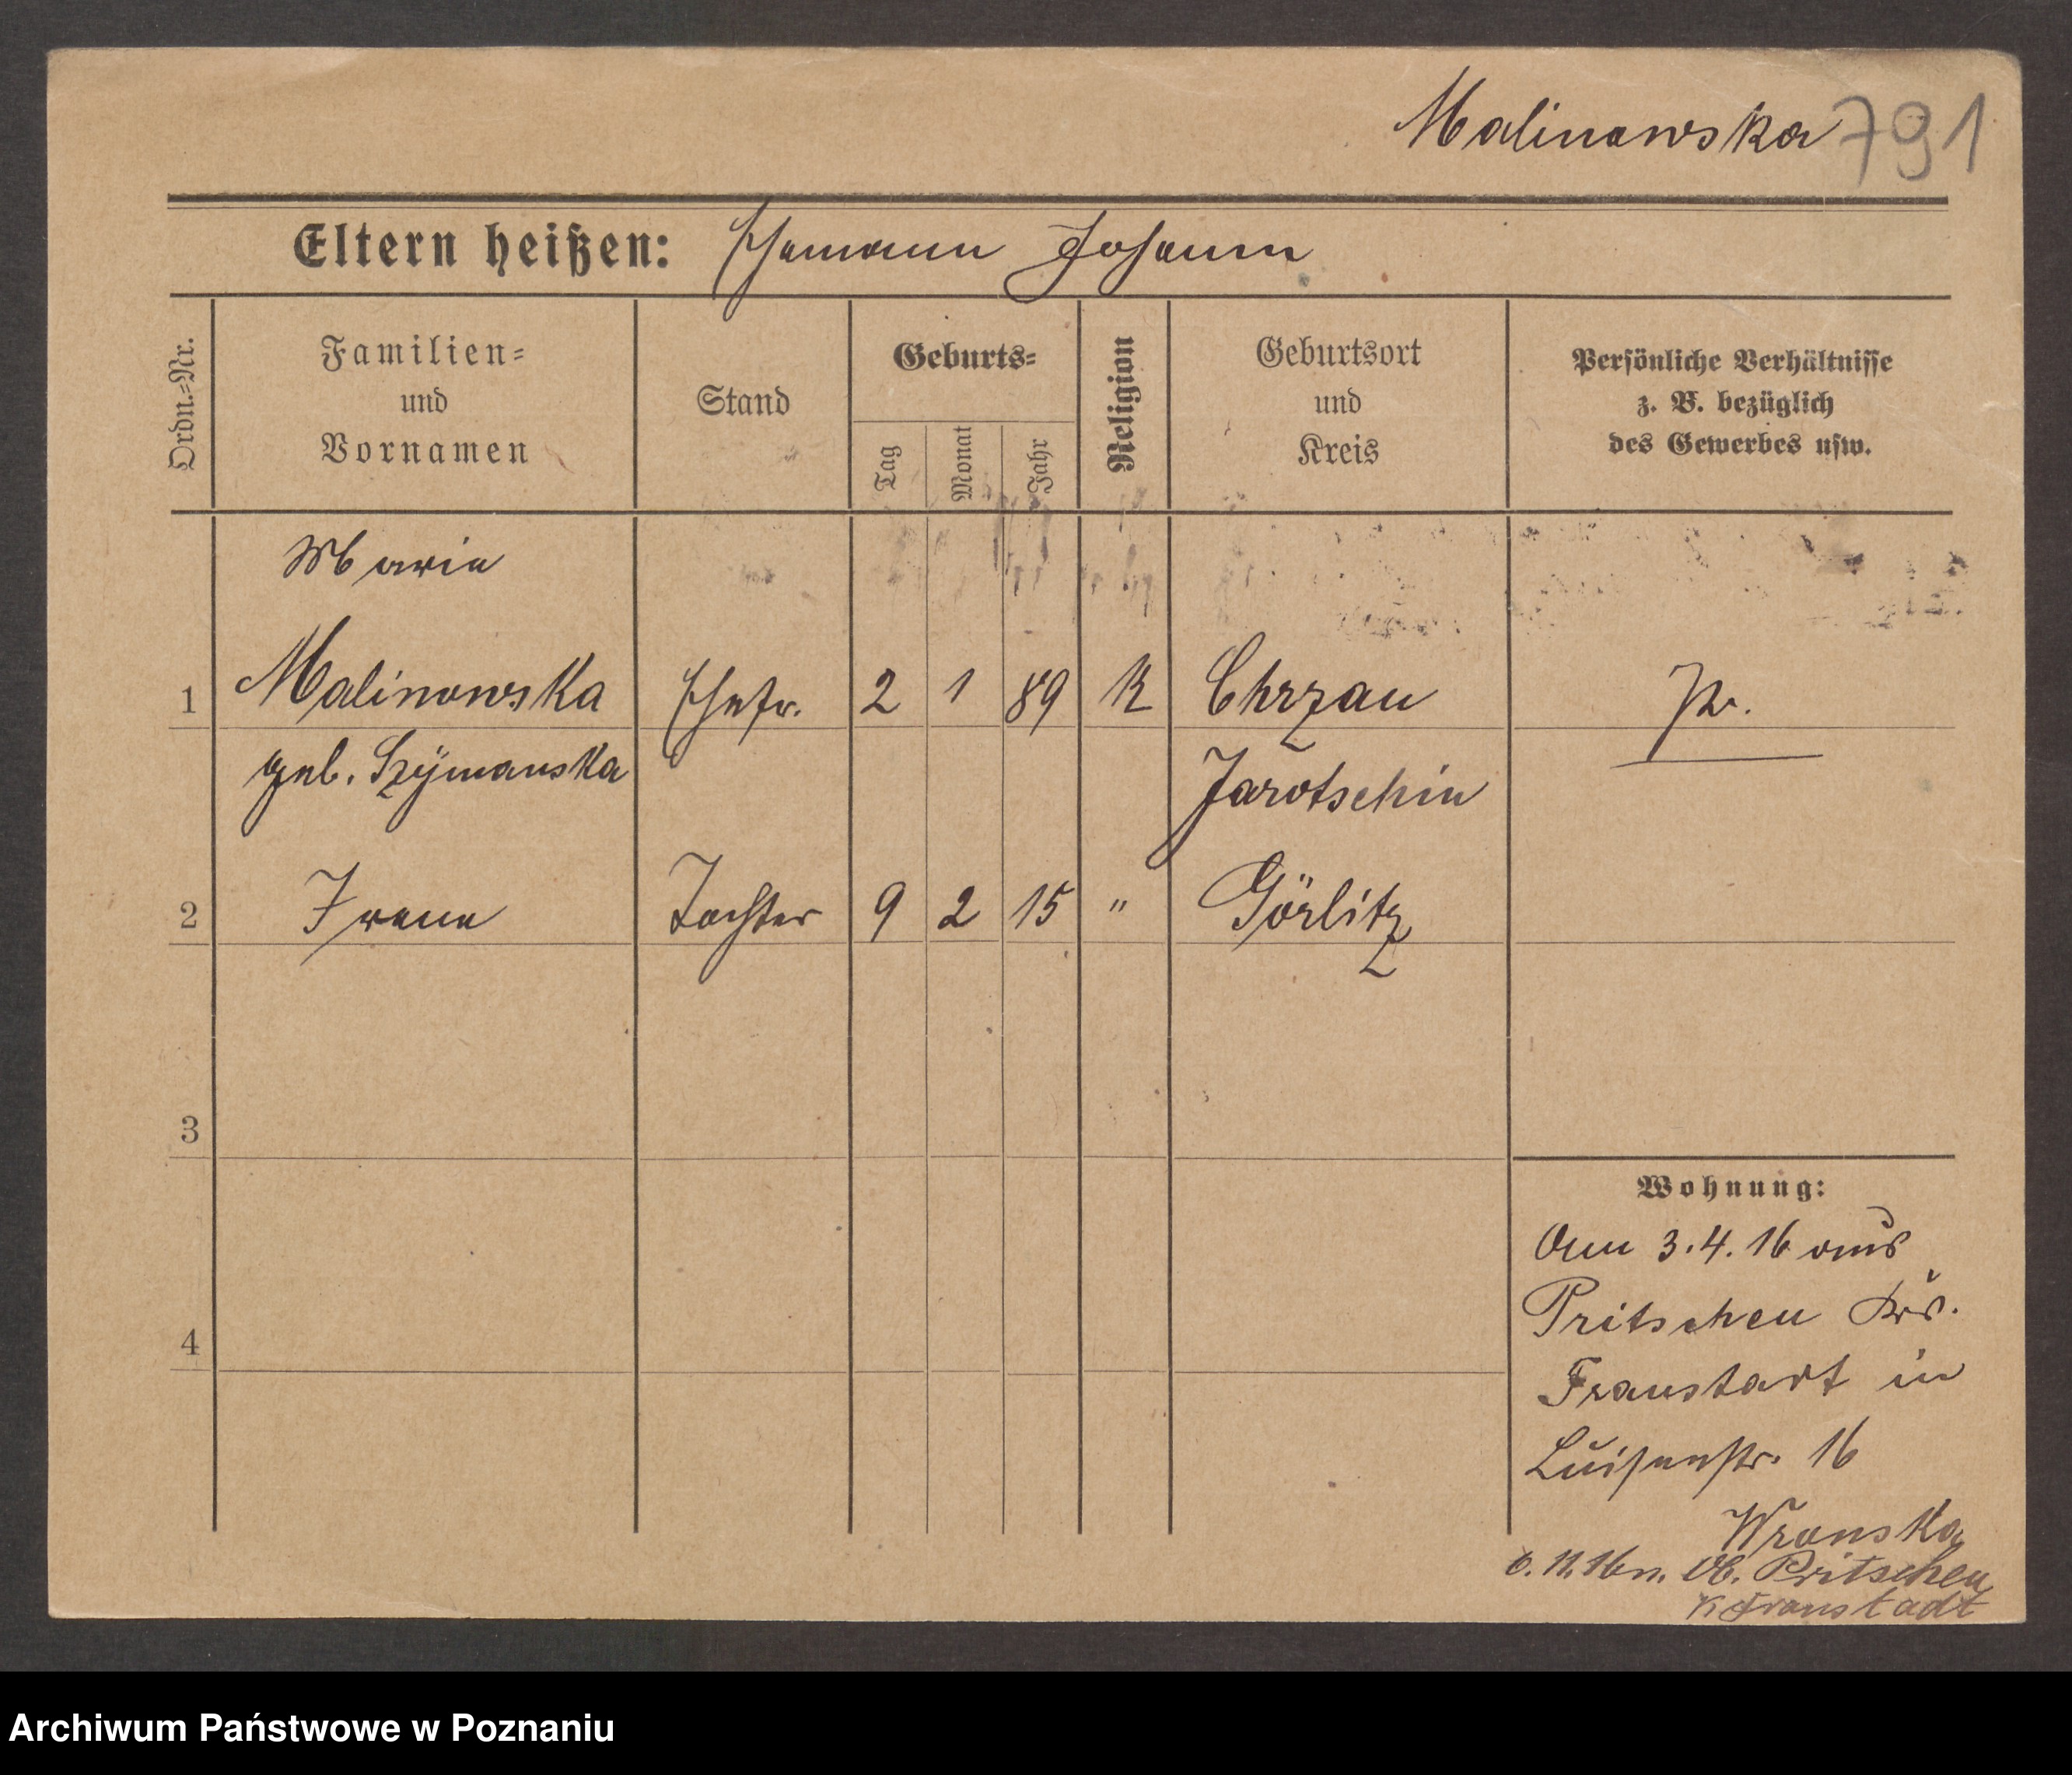 Malinowska 791
Eltern heißen: Ehemann Johann
Ordn.=Nr.
Familien=
und
Vornamen
Stand
Geburts=
Tag
Monat
Jahr
Religion
Geburtsort
und
Kreis
Persönliche Verhältnisse
z. B. bezüglich
des Gewerbes usw.
Maria
1 Malinowska Ehefr. 2 1 89 K Chrzan Pr.
geb. Szÿmanska Jarotschin
2 Irene Tochter 9 2 15 " Görlitz
3
4
Wohnung:
Am 3.4.16 aus
Pritschen Krs.
Fraustadt in
Luisenstr. 16
Wronska
6. 11. 16 n. Ob. Pritschen
K Fraustadt
Archiwum Państwowe w Poznaniu